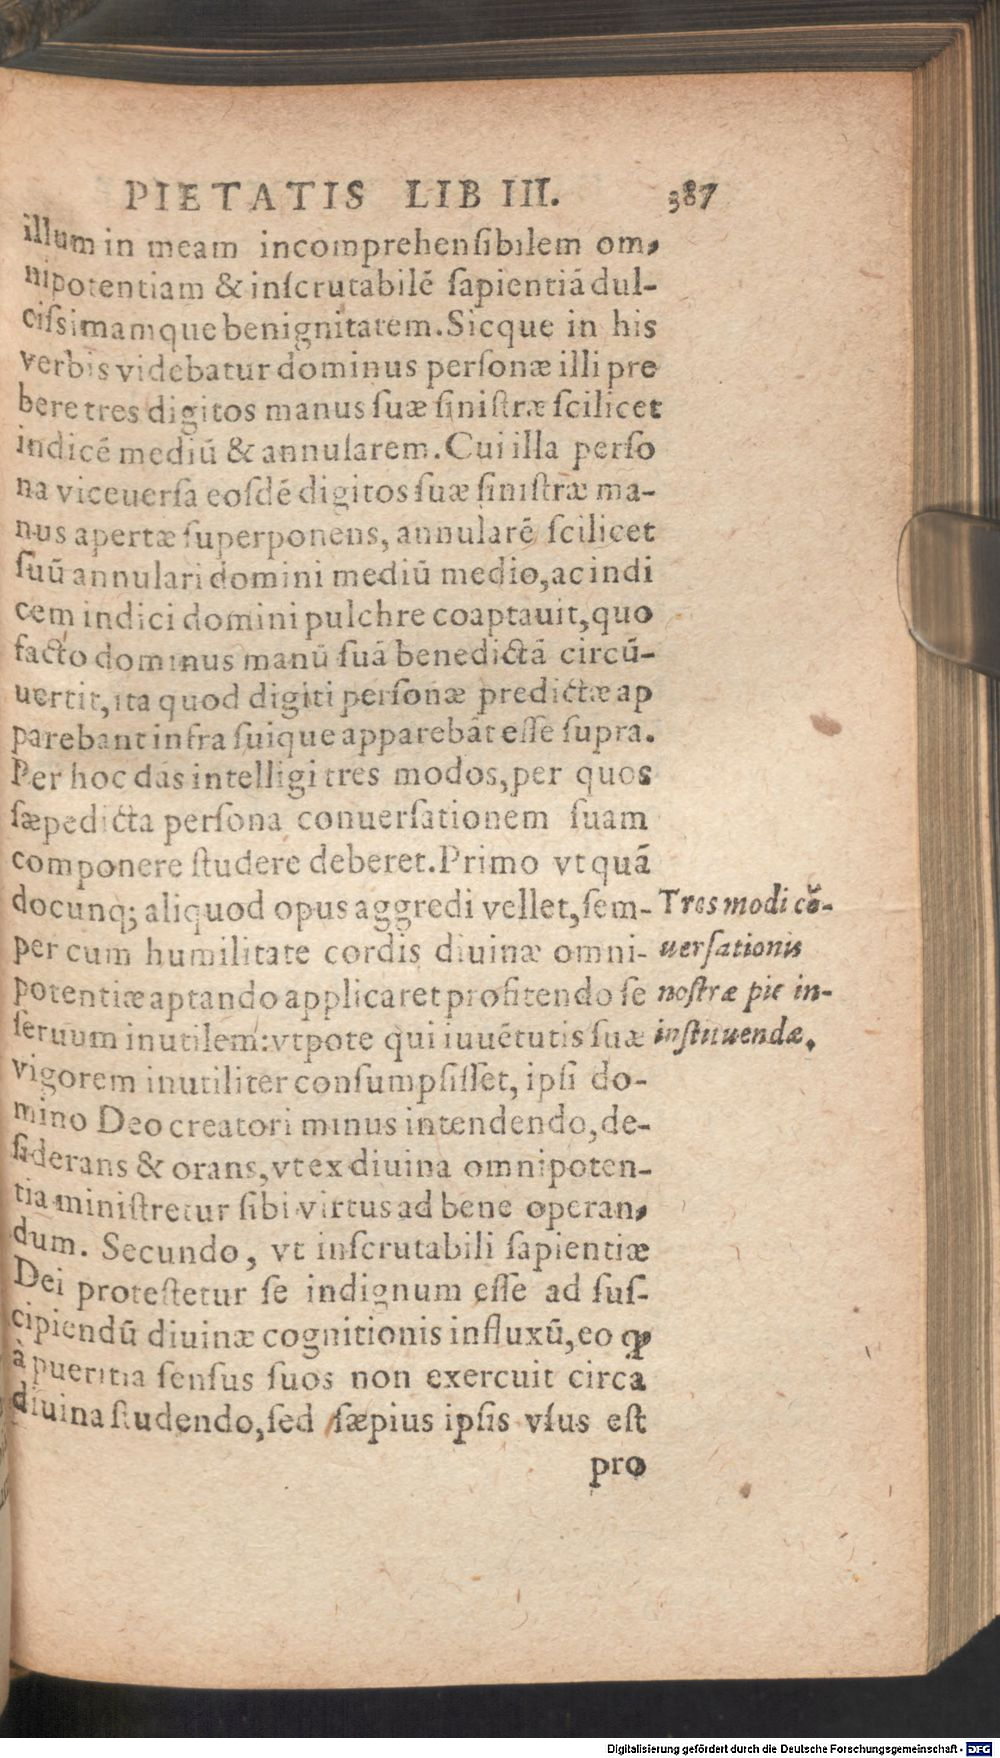 PIETATIS LIB III. 387
illum in meam incomprehenſibilem om,
nipotentiam & inſcrutabilē ſapientiā dul-
ciſsimamque benignitatem. Sicque in his
verbis videbatur dominus perſonæ illi pre
bere tres digitos manus ſuæ ſiniſtræ ſcilicet
indicē mediū & annularem. Cui illa perſo
na viceuerſa eoſdē digitos ſuæ ſiniſtræ ma-
nus apertæ ſuperponens, annularē ſcilicet
ſuū annulari domini mediū medio, ac indi
cem indici domini pulchre coaptauit, quo
facto dominus manū ſuā benedictā circū-
uertit, ita quod digiti perſonæ predictæ ap
parebant infra ſuique apparebāt eſſe ſupra.
Per hoc dās intelligi tres modos, per quos
ſæpedicta perſona conuerſationem ſuam
componere ſtudere deberet. Primo vt quā
docunq; aliquod opus aggredi vellet, ſem-
per cum humilitate cordis diuinæ omni-
potentiæ aptando applicaret profitendo ſe
ſeruum inutilem: vtpote qui iuuētutis ſuæ
vigorem inutiliter conſumpſiſſet, ipſi do-
mino Deo creatori minus intendendo, de-
ſiderans & orans, vt ex diuina omnipoten-
tia miniſtretur ſibi virtus ad bene operan,
dum. Secundo, vt inſcrutabili ſapientiæ
Dei proteſtetur ſe indignum eſſe ad ſuſ-
cipiendū diuinæ cognitionis influxū, eo ꝙ
à pueritia ſenſus ſuos non exercuit circa
diuina ſtudendo, ſed ſæpius ipſis vſus eſt
pro
Tres modi cō-
uerſationis
noſtræ pie in-
inſtituendæ.
Digitalisierung gefördert durch die Deutsche Forschungsgemeinschaft - DFG